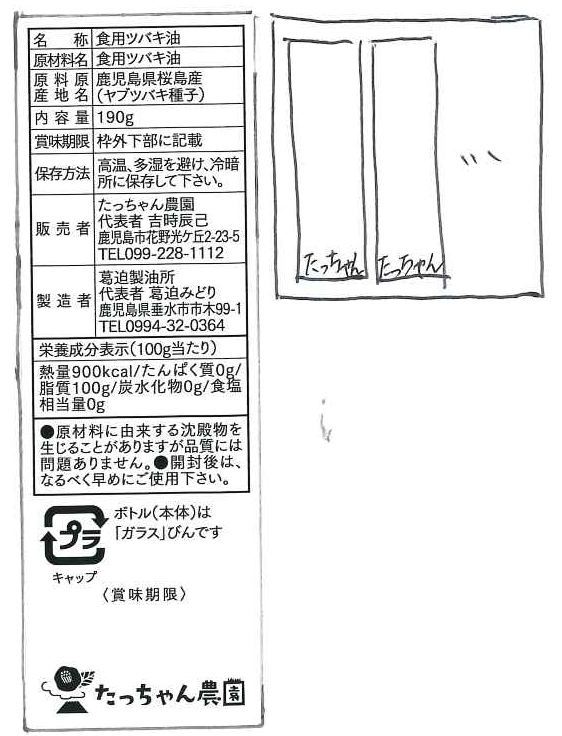 名称 食用ツバキ油
原材料名 食用ツバキ油
原料原産地名 鹿児島県桜島産
(ヤブツバキ種子)
内容量 190g
賞味期限 枠外下部に記載
保存方法 高温、多湿を避け、冷暗
所に保存して下さい。
販売者 たっちゃん農園
代表者 吉時辰己
鹿児島市花野光ケ丘2-23-5
TEL099-228-1112
製造者 葛迫製油所
代表者 葛迫みどり
鹿児島県垂水市市木99-1
TEL0994-32-0364
栄養成分表示(100g当たり)
熱量900kcal/たんぱく質0g/
脂質100g/炭水化物0g/食塩
相当量0g
●原材料に由来する沈殿物を
生じることがありますが品質には
問題ありません。●開封後は、
なるべく早めにご使用下さい。
プラ
キャップ
ボトル(本体)は
「ガラス」びんです
〈賞味期限〉
たっちゃん農園
たっちゃん
たっちゃん